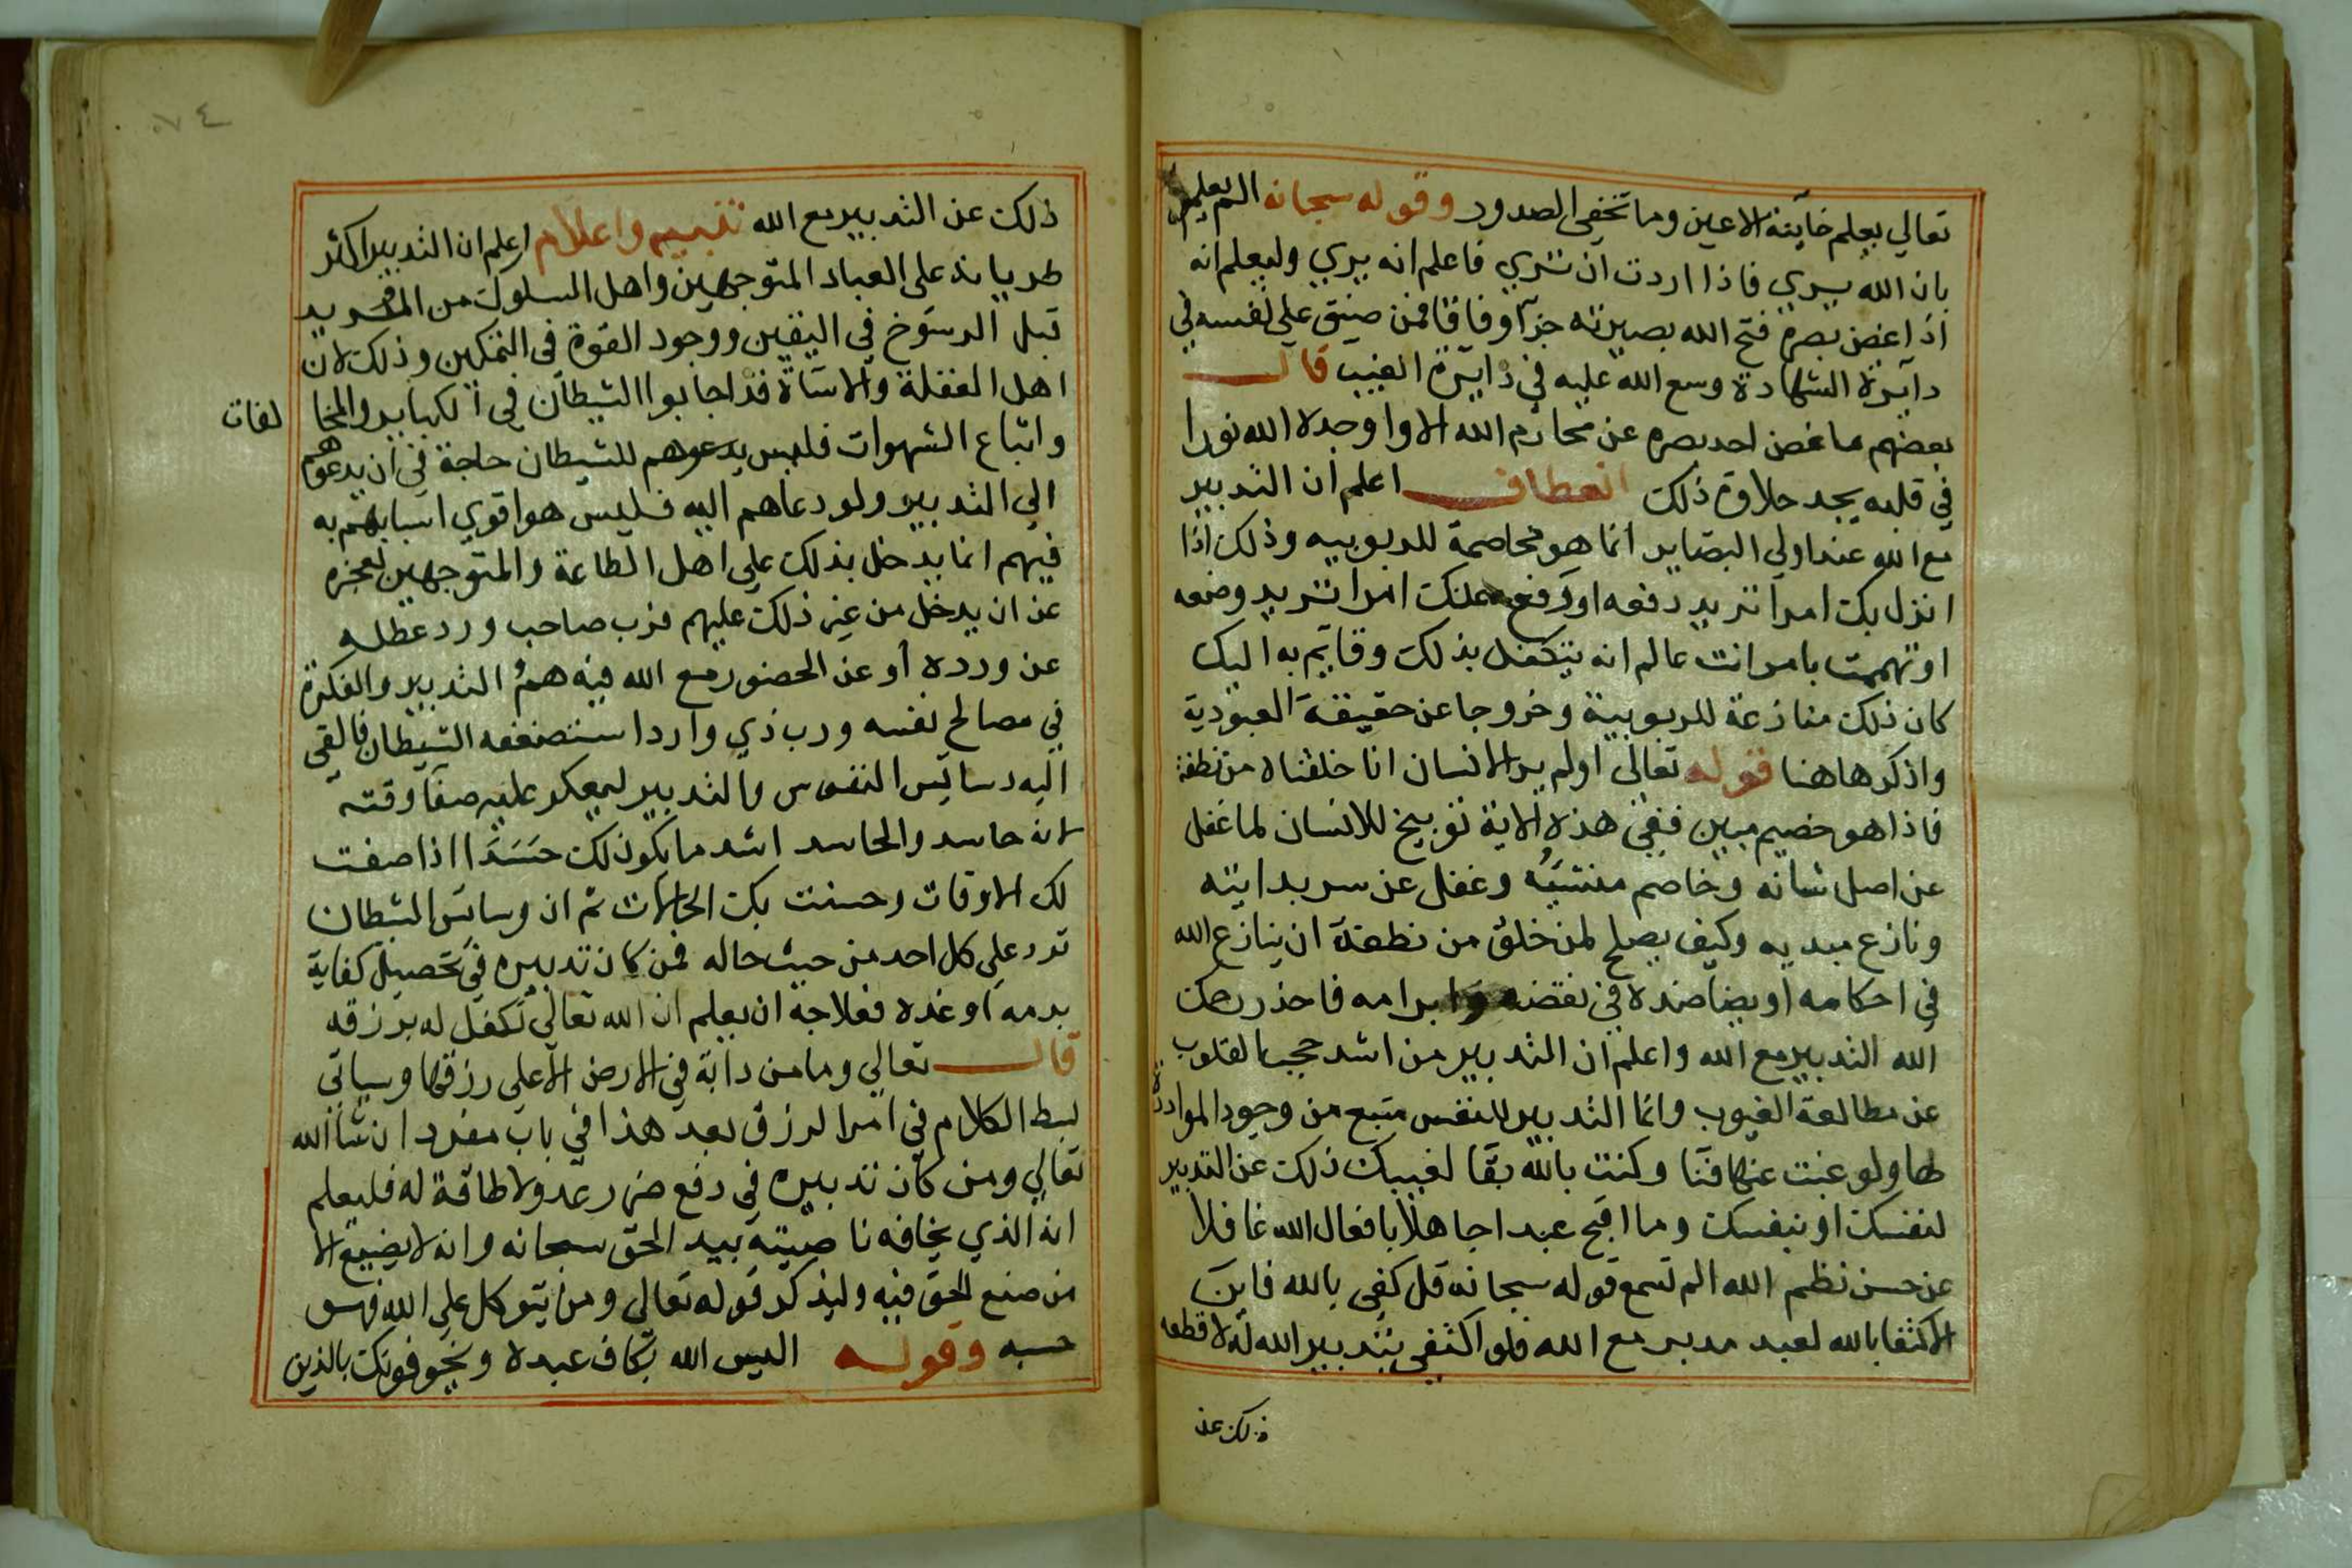 تعالي يعلم خآينة الاعين وما تخفي الصدور وقوله سبحانه الم يعلم
بان الله يري فاذا اردت ان تري فاعلم انه يري وليعلم انه
اذا اغض بصره فتح الله بصيرته جزآ وفاقا فمن ضيق علي نفسه في
دآيرة الشهادة وسع الله عليه في دايرة الغيب قال
بعضهم ما غض احد بصره عن محارم الله الا واوجده الله نورا
في قلبه يجد حلاوة ذلك انعطاف اعلم ان التدبير
مع الله عند اولي البصاير انما هو مخاصمة للربوبيه وذلك اذا
انزل بك امرا تريد دفعه او رفع عنك امرا تريد وضعه
او تهممت بامر انت عالم انه يتكفل بذلك وقايم به اليك
كان ذلك منازعة للربوبية وخروجا عن حقيقة العبودية
واذكر هاهنا قوله تعالى اولم ير الانسان انا خلقناه من نطفة
فاذا هو خصيم مبين ففي هذه الاية توبيخ للانسان لما غفل
عن اصل شانه وخاصم منشيه وغفل عن سر بدايته
ونازع مبديه وكيف يصلح لمن خلق من نطفة ان ينازع الله
في احكامه او يضاضده في نقضه وابرامه فاحذر رحمك
الله التدبير مع الله واعلم ان التدبير من اشد حجب القلوب
عن مطالعة الغيوب وانما التدبير للنفس متبع من وجود المواددة
لها ولو غبت عنها فنا وكنت بالله بقا لغيبك ذلك عن التدبير
لنفسك او بنفسك وما اقبح عبدا جاهلا بافعال الله غافلا
عن حسن نظم الله الم تسمع قوله سبحانه قل كفى بالله فاين
الاكتفا بالله لعبد مدبر مع الله فلو اكتفي بتدبير الله له لاقطعه
ذلك عن
٧٤
ذلك عن التدبير مع الله تنبيه واعلام اعلم ان التدبير اكثر
طريانه على العباد المتوجهين واهل السلوك من المريد
قبل الرسوخ في اليقين ووجود القوة في التمكين وذلك لان
اهل الغفلة والاسآة قد اجابوا الشيطان في الكباير والمخا لفات
واتباع الشهوات فليس يدعوهم للشيطان حاجة في ان يدعوهم
الي التدبير ولو دعاهم اليه فليس هو اقوي اسبابهم به
فيهم انما يدخل بذلك علي اهل الطاعة والمتوجهين لعجزه
عن ان يدخل من غير ذلك عليهم فرب صاحب ورد عطله
عن ورده أو عن الحضور مع الله فيه همُ التدبير والفكرة
في مصالح نفسه ورب ذي وارد استضعفه الشيطان فالقي
اليه دسايس النفوس والتدبير ليعكر عليه صفآ وقته
لانه حاسد والحاسد اشد ما يكون لك حَسَدًا اذا صفت
لك الاوقات وحسنت بك الحالات ثم ان وساس الشيطان
ترد علي كل احد من حيث حاله فمن كان تدبيره في تحصيل كفاية
يومه او غده فعلاجه ان يعلم ان الله تعالي تكفل له برزقه
قال تعالي وما من دابة في الارض الا علي رزقها وسياتي
بسط الكلام في امر الرزق بعد هذا في باب مفرد ان شآ الله
تعالي ومن كان تدبيره في دفع ضرر عدو لا طاقة له فليعلم
انه الذي يخافه ناصيته بيد الحق سبحانه وانه لا يضيع الا
من صنع الحق فيه وليذكر قوله تعالي ومن يتوكل علي الله فهو
حسبه وقوله اليس الله بكاف عبده ويخوفونك بالذين